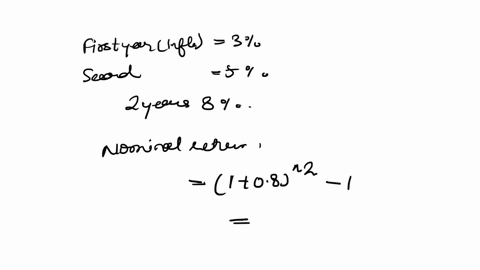 First year (Infla) = 3%
Second = 5%.
2 years 8%.
Nominal return.
= (1+0.8)^2 - 1
=